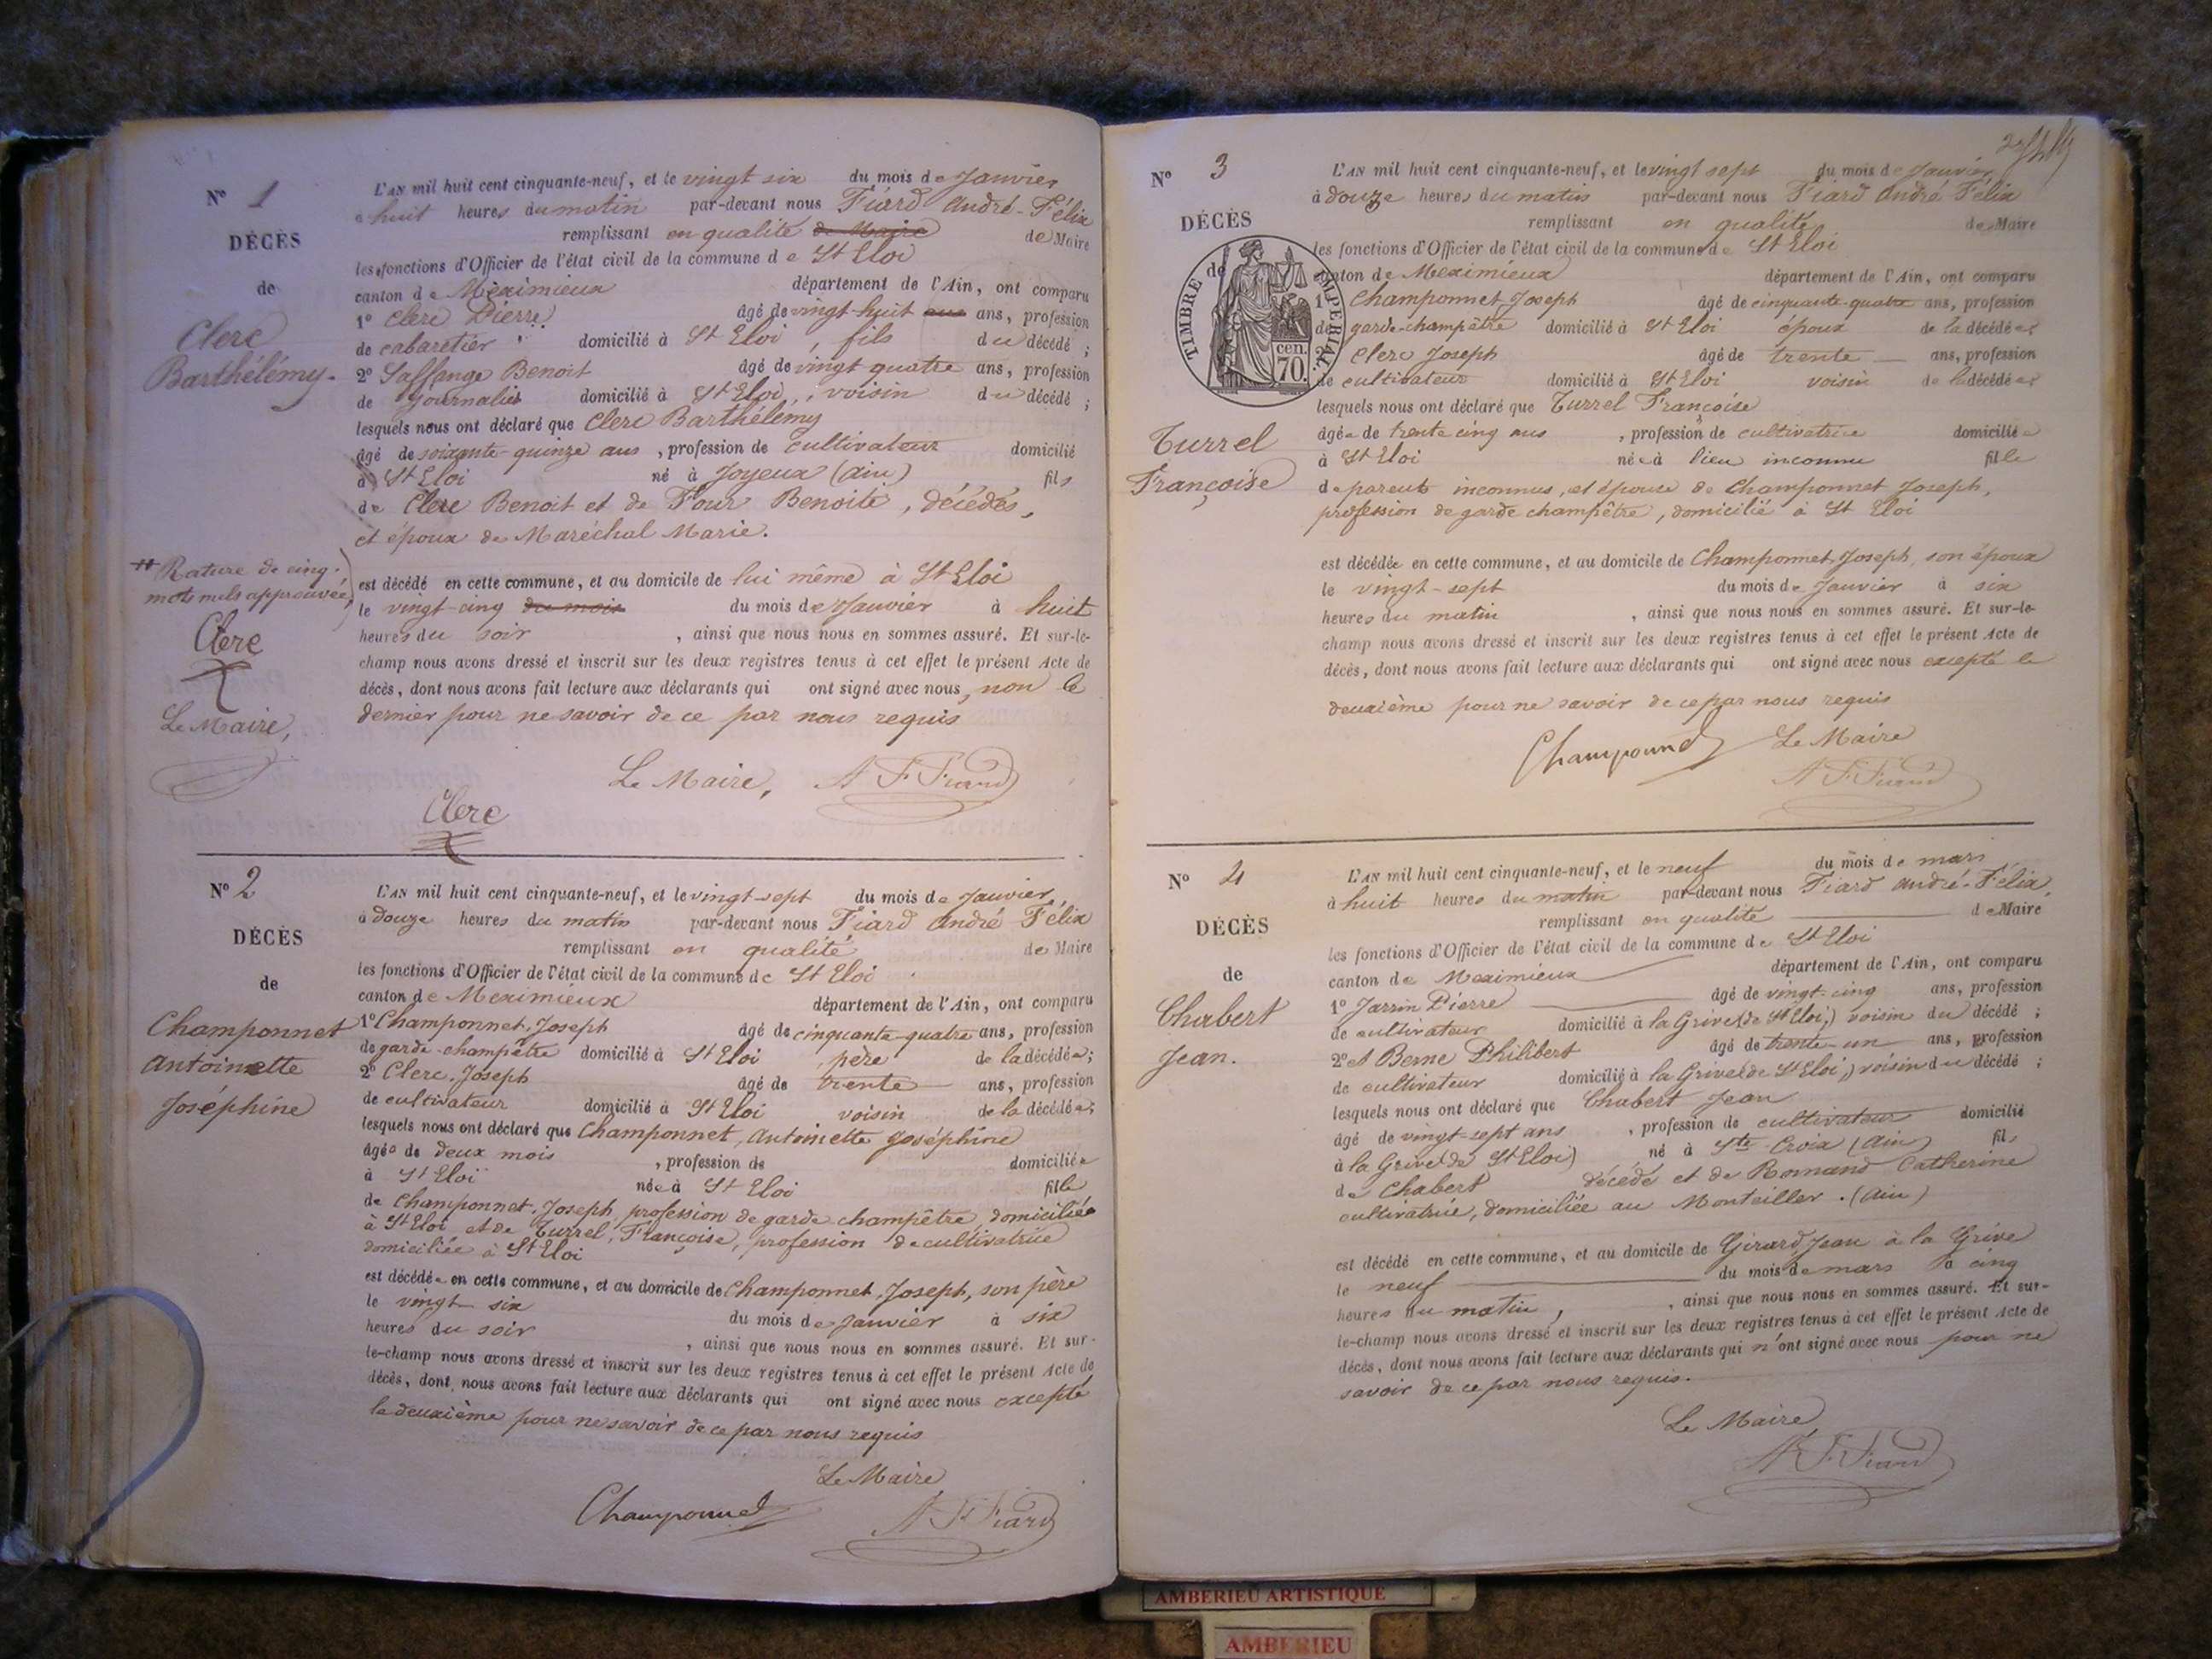 N° 1
DÉCÈS
de
Clerc
Barthélémy.
L'AN mil huit cent cinquante-neuf, et le vingt six du mois de Janvier
à huit heures du matin par-devant nous Fiard André-Félix
remplissant en qualité de Maire de Maire
les fonctions d'Officier de l'état civil de la commune de St Eloi
canton de Meximieux département de l'Ain, ont comparu
1° Clerc Pierre âgé de vingt-huit ans ans, profession
de cabaretier domicilié à St Eloi, fils du décédé ;
2° Saffange Benoit âgé de vingt quatre ans, profession
de journalier domicilié à St Eloi, voisin du décédé ;
lesquels nous ont déclaré que Clerc Barthélémy
âgé de soixante-quinze ans, profession de cultivateur domicilié
à St Eloi né à Joyeux (Ain) fils
de Clerc Benoit et de Four Benoite, décédés,
et époux de Maréchal Marie.
est décédé en cette commune, et au domicile de lui même à St Eloi
le vingt-cinq du mois du mois de Janvier à huit
heures du soir, ainsi que nous nous en sommes assuré. Et sur-le-
champ nous avons dressé et inscrit sur les deux registres tenus à cet effet le présent Acte de
décès, dont nous avons fait lecture aux déclarants qui ont signé avec nous, non le
dernier pour ne savoir de ce par nous requis
Rature de cinq
mots nuls approuvée
Clerc
Le Maire,
Le Maire, A F Fiard
Clerc
N° 2
DÉCÈS
de
Champonnet
Antoinette
Joséphine
L'AN mil huit cent cinquante-neuf, et le vingt-sept du mois de Janvier
à douze heures du matin par-devant nous Fiard André Félix
remplissant en qualité de Maire
les fonctions d'Officier de l'état civil de la commune de St Eloi
canton de Meximieux département de l'Ain, ont comparu
1° Champonnet, Joseph âgé de cinquante-quatre ans, profession
de garde-champêtre domicilié à St Eloi, père de la décédée;
2° Clerc, Joseph âgé de trente ans, profession
de cultivateur domicilié à St Eloi voisin de la décédée;
lesquels nous ont déclaré que Champonnet, Antoinette Joséphine
âgée de deux mois, profession de domiciliée
à St Eloi née à St Eloi fille
de Champonnet, Joseph, profession de garde champêtre, domiciliée
à St Eloi et de Turrel, Françoise, profession de cultivatrice
domiciliée à St Eloi
est décédée en cette commune, et au domicile de Champonnet, Joseph, son père
le vingt-six du mois de Janvier à six
heures du soir, ainsi que nous nous en sommes assuré. Et sur-
le-champ nous avons dressé et inscrit sur les deux registres tenus à cet effet le présent Acte de
décès, dont nous avons fait lecture aux déclarants qui ont signé avec nous excepté
le deuxième pour ne savoir de ce par nous requis
Le Maire
Champonnet A F Fiard
N° 3
DÉCÈS
de
TIMBRE IMPERIAL.
70. cen.
Turrel
Françoise
L'AN mil huit cent cinquante-neuf, et le vingt sept du mois de Janvier
à douze heures du matin par-devant nous Fiard André Félix
remplissant en qualité de Maire
les fonctions d'Officier de l'état civil de la commune de St Eloi
canton de Meximieux département de l'Ain, ont comparu
1° Champonnet, Joseph âgé de cinquante-quatre ans, profession
de garde-champêtre domicilié à St Eloi époux de la décédée;
2° Clerc Joseph âgé de trente ans, profession
de cultivateur domicilié à St Eloi voisin de la décédée;
lesquels nous ont déclaré que Turrel Françoise
âgée de trente cinq ans, profession de cultivatrice domiciliée
à St Eloi née à lieu inconnu fille
de parents inconnus, et épouse de Champonnet Joseph,
profession de garde champêtre, domicilié à St Eloi
est décédée en cette commune, et au domicile de Champonnet, Joseph, son époux
le vingt-sept du mois de Janvier à six
heures du matin, ainsi que nous nous en sommes assuré. Et sur-le-
champ nous avons dressé et inscrit sur les deux registres tenus à cet effet le présent Acte de
décès, dont nous avons fait lecture aux déclarants qui ont signé avec nous excepté le
deuxième pour ne savoir de ce par nous requis
Champonnet Le Maire
A F Fiard
N° 4
DÉCÈS
de
Chabert
Jean.
L'AN mil huit cent cinquante-neuf, et le neuf du mois de mars
à huit heures du matin par-devant nous Fiard André-Félix
remplissant en qualité de Maire
les fonctions d'Officier de l'état civil de la commune de St Eloi
canton de Meximieux département de l'Ain, ont comparu
1° Jarrin Pierre âgé de vingt-cinq ans, profession
de cultivateur domicilié à la Grive (de St Eloi,) voisin du décédé ;
2° et Berne Philibert âgé de trente-un ans, profession
de cultivateur domicilié à la Grive (de St Eloi,) voisin du décédé ;
lesquels nous ont déclaré que Chabert Jean
âgé de vingt-sept ans, profession de cultivateur domicilié
à la Grive (de St Eloi) né à Ste Croix (Ain) fils
de Chabert décédé et de Romand Catherine
cultivatrice, domiciliée au Monteiller. (Ain)
est décédé en cette commune, et au domicile de Girard, Jean à la Grive
le neuf du mois de mars à cinq
heures du matin, , ainsi que nous nous en sommes assuré. Et sur-
le-champ nous avons dressé et inscrit sur les deux registres tenus à cet effet le présent Acte de
décès, dont nous avons fait lecture aux déclarants qui n'ont signé avec nous pour ne
savoir de ce par nous requis.
Le Maire
A F Fiard
AMBERIEU ARTISTIQUE
AMBERIEU